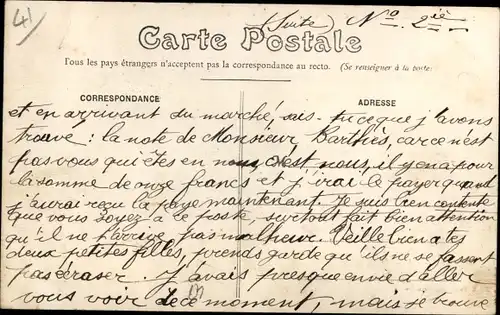 41
(Suite) No. 2ie
Carte Postale
Tous les pays étrangers n'acceptent pas la correspondance au recto. (Se renseigner à la poste)
CORRESPONDANCE
ADRESSE
et en arrivant du marché, sais-tu ce que j'avons
trouvé : la note de Monsieur Barthès, car ce n'est
pas vous qui êtes en c'est nous, il y en a pour
la somme de onze francs et j'irai le payer quand
j'aurai reçu la paye maintenant. Je suis bien contente
que vous soyez à ce poste, surtout fait bien attention
qu'il ne t'arrive pas malheur. Veille bien a tes
deux petites filles, prends garde qu'ils ne se fassent
pas écraser. J'avais presque envie d'aller
vous voir de ce moment, mais se trouve